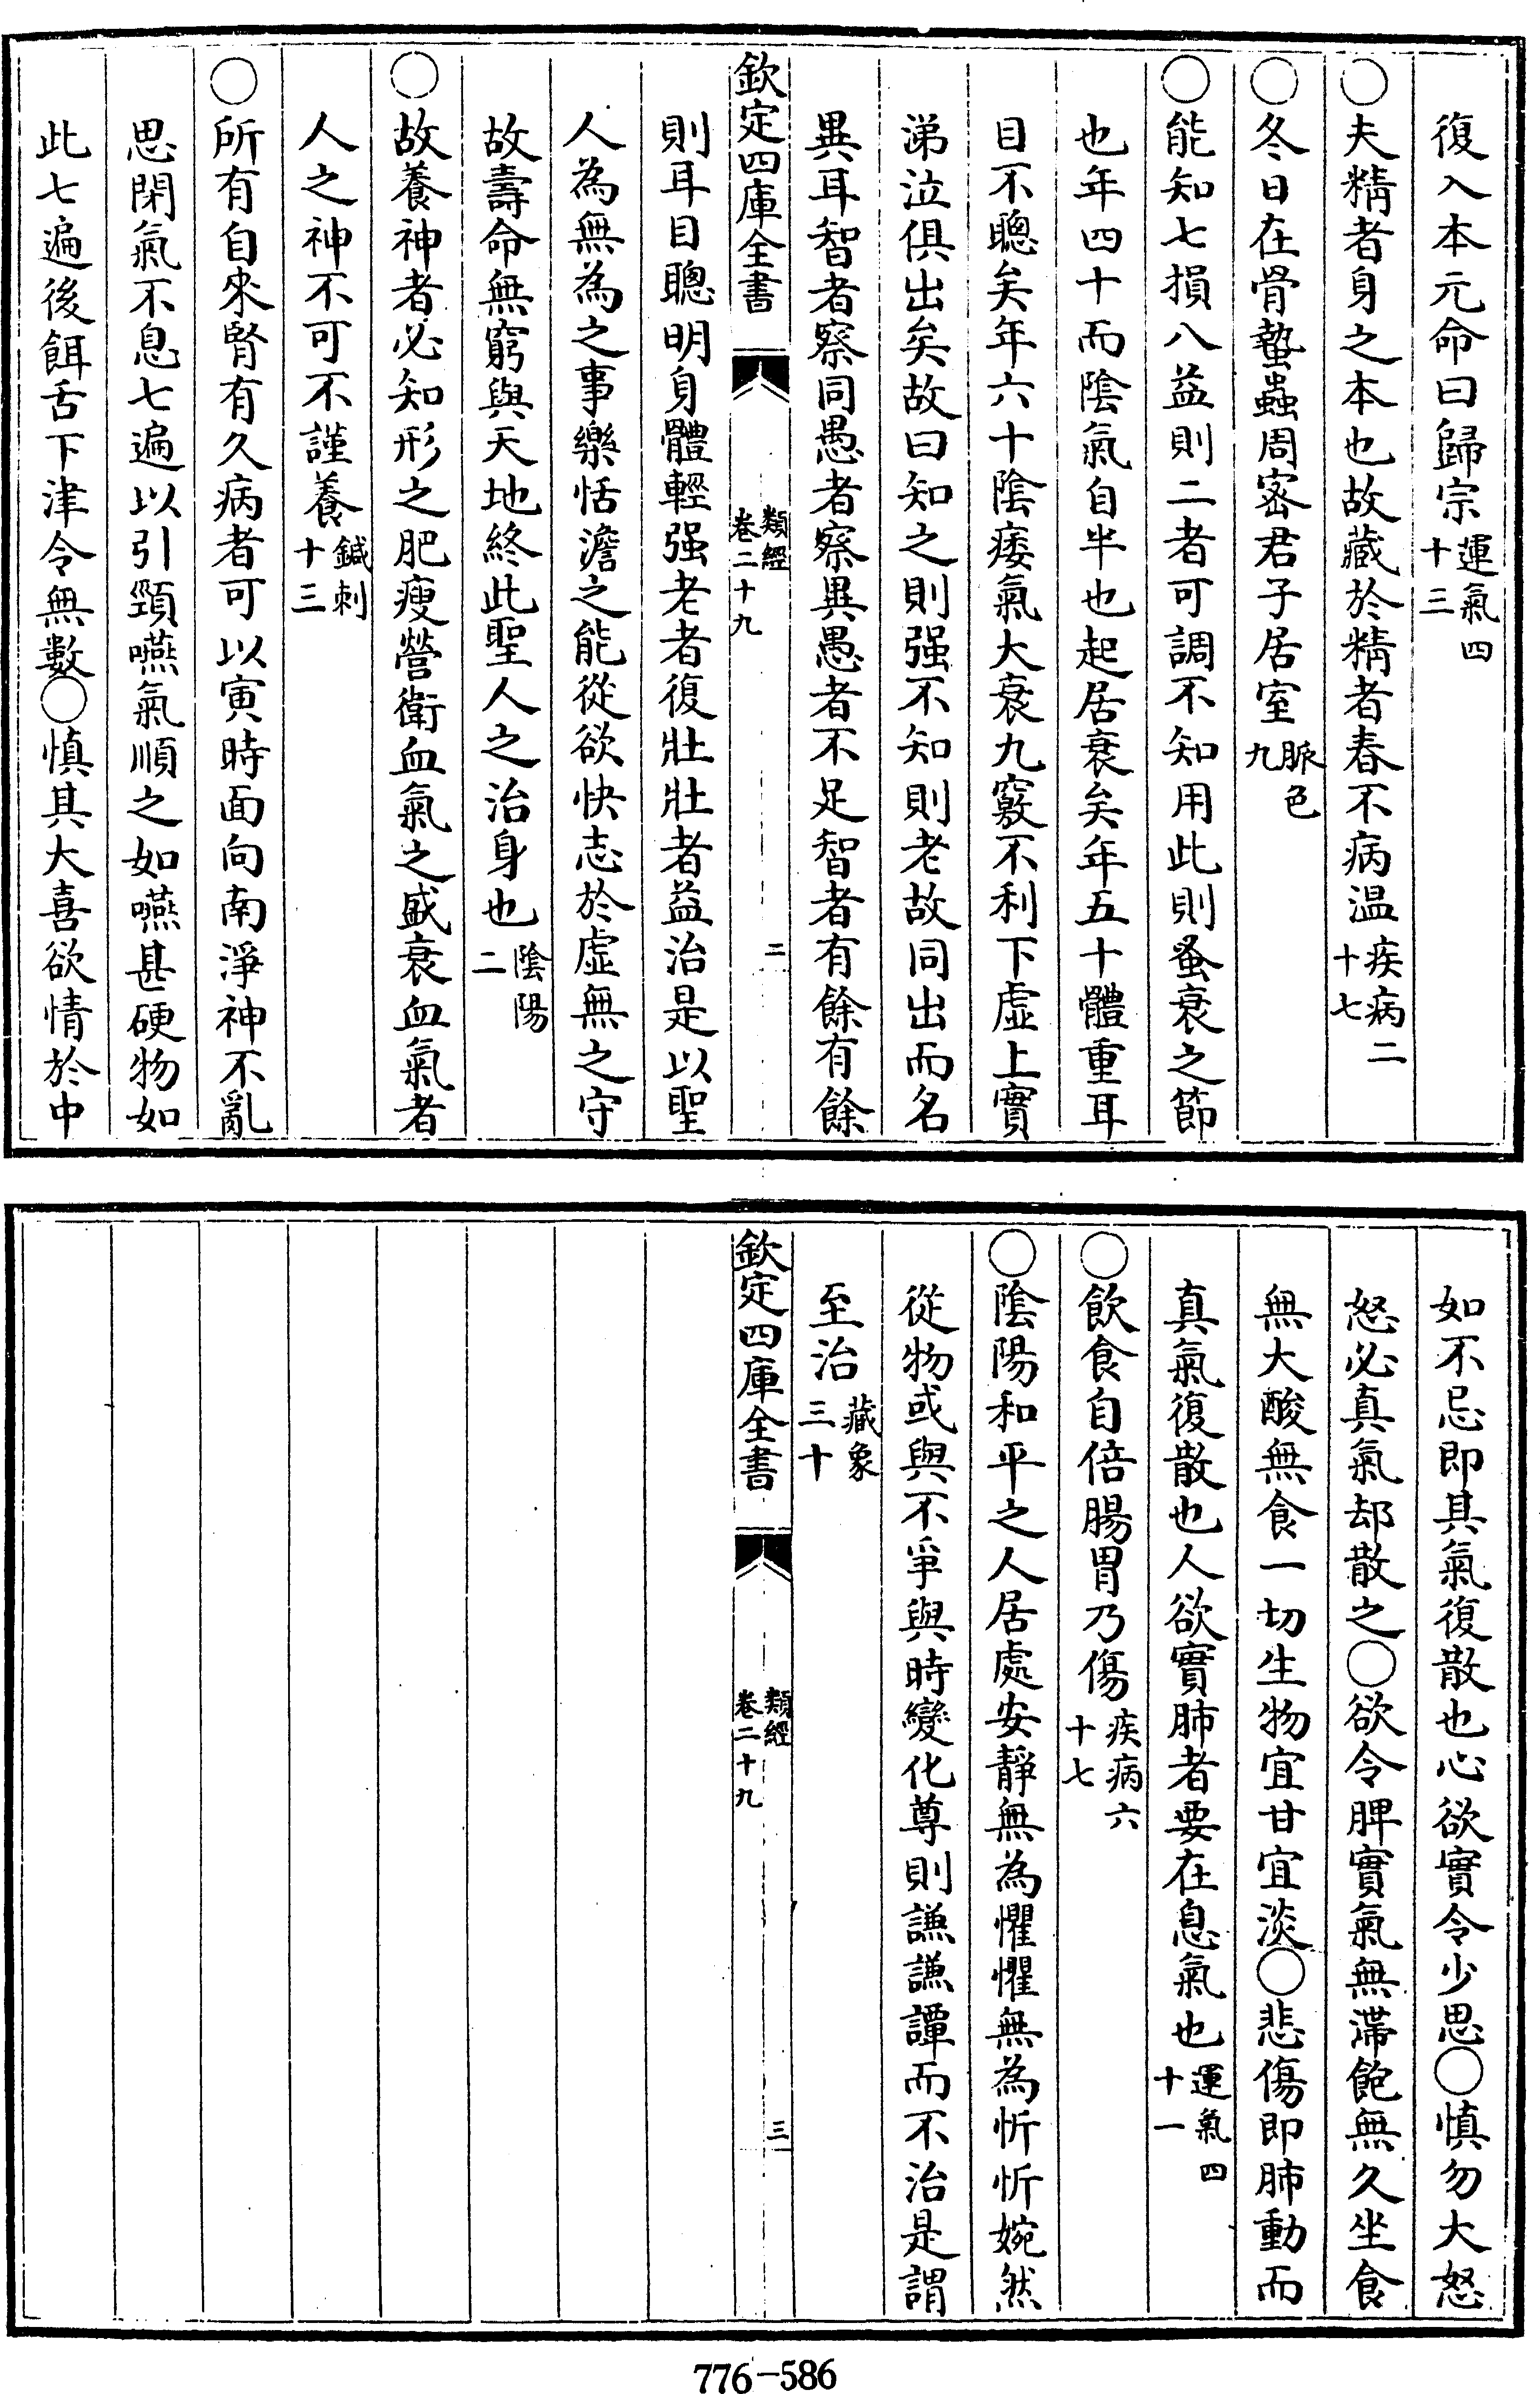 復入本元命曰歸宗運氣四十三
○夫精者身之本也故藏於精者春不病温疾病二十七
○冬日在骨蟄蟲周密君子居室脈色九
○能知七損八益則二者可調不知用此則蚤衰之節
也年四十而陰氣自半也起居衰矣年五十體重耳
目不聰矣年六十陰痿氣大衰九竅不利下虛上實
涕泣俱出矣故曰知之則强不知則老故同出而名
異耳智者察同愚者察異愚者不足智者有餘有餘
欽定四庫全書 類經卷二十九 二
則耳目聰明身體輕强老者復壯壯者益治是以聖
人為無為之事樂恬澹之能從欲快志於虛無之守
故壽命無窮與天地終此聖人之治身也陰陽二
○故養神者必知形之肥瘦營衛血氣之盛衰血氣者
人之神不可不謹養鍼刺十三
○所有自來腎有久病者可以寅時面向南淨神不亂
思閉氣不息七遍以引頸嚥氣順之如嚥甚硬物如
此七遍後餌舌下津令無數○慎其大喜欲情於中
如不忌即其氣復散也心欲實令少思○慎勿大怒
怒必真氣却散之○欲令脾實氣無滯飽無久坐食
無大酸無食一切生物宜甘宜淡○悲傷即肺動而
真氣復散也人欲實肺者要在息氣也運氣四十一
○飲食自倍腸胃乃傷疾病六十七
○陰陽和平之人居處安靜無為懼懼無為忻忻婉然
從物或與不爭與時變化尊則謙謙譚而不治是謂
至治藏象三十
欽定四庫全書 類經卷二十九 三
776-586